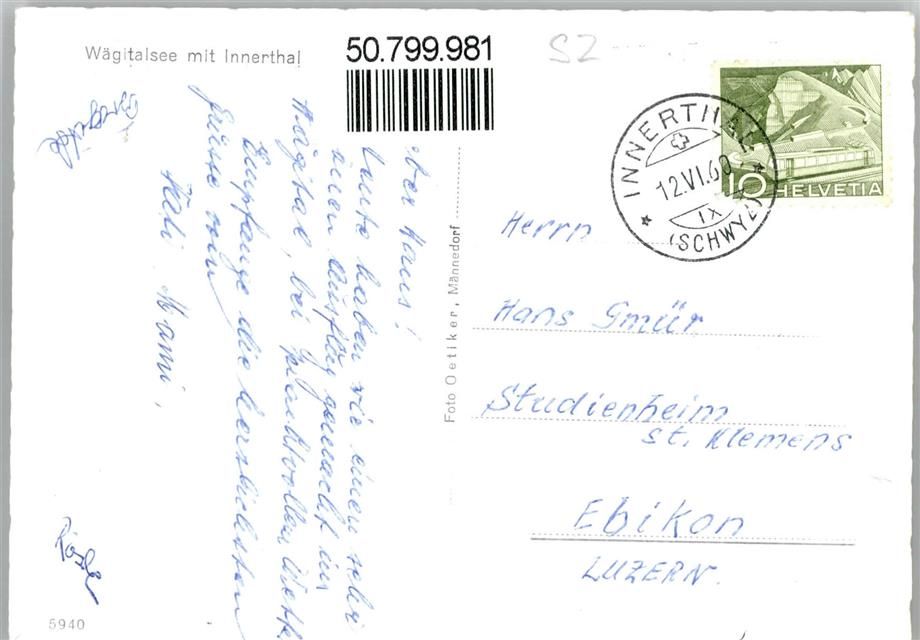 Wägitalsee mit Innerthal
50.799.981
SZ
INNERTHAL
12.VI.60
IX
(SCHWYZ)
10 HELVETIA
ber Hans!
haben wir einen sehr
Ausflug gemacht ins
bei
Empfange die herzlichsten
Grüsse von
Mami,
Foto Oetiker, Männedorf
Herrn
Hans Gmür
Studienheim
St. Klemens
Ebikon
LUZERN.
5940